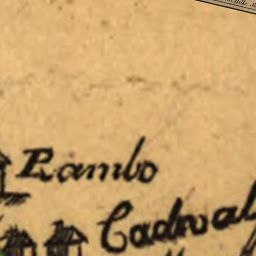 Rambo
Cadwal